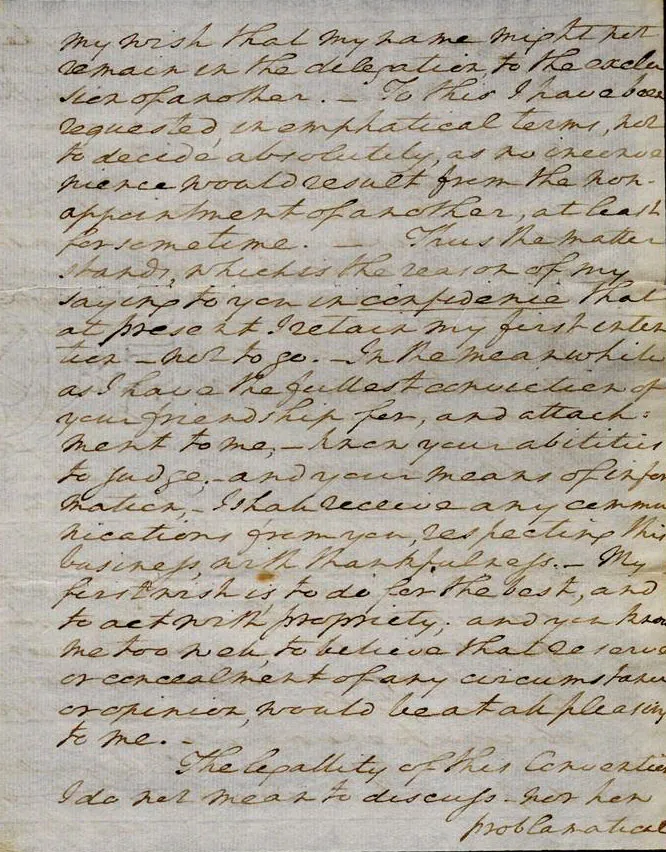 my wish that my name might not
remain in the delegation, to the exclu
sion of another. — To this I have been
requested, in emphatical terms, not
to decide absolutely, as no inconve
nience would result from the non-
appointment of another, at least
for sometime. — Thus the matter
stands, which is the reason of my
saying to you in confidence that
at present I retain my first inten
tion – not to go. – In the meanwhile
as I have the fullest conviction of
your friendship for, and attach=
ment to me; – know your abilities
to judge; – and your means of infor
mation, – I shall receive any commu
nications from you, respecting this
business, with thankfulness. – My
first wish is, to do for the best, and
to act with propriety; and you know
me too well, to believe that reserve
or concealment of any circumstance
or opinion, would be at all pleasing
to me. –
The legallity of this Convention
I do not mean to discuss – nor how
problamatical